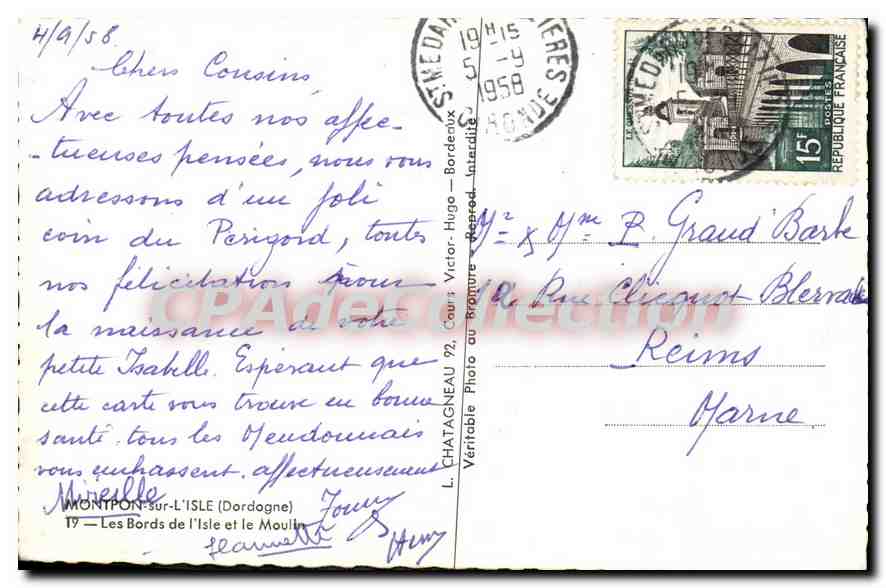 4/9/58
Chers Cousins
Avec toutes nos affec-
-tueuses pensées, nous vous
adressons d'un joli
coin du Périgord, toutes
nos félicitations pour
la naissance de votre
petite Isabelle. Espérant que
cette carte vous trouve en bonne
santé. tous les Meudonnais
vous embrassent affectueusement
Mireille
Jeannette
Henry
MONTPON-sur-L'ISLE (Dordogne)
19 — Les Bords de l'Isle et le Moulin
L. CHATAGNEAU 92, Cours Victor-Hugo — Bordeaux
Véritable Photo au Bromure - Reprod. Interdite
19H15
5 - 9
1958
GIRONDE
15F
POSTES
RÉPUBLIQUE FRANÇAISE
LE QUESNOY
Mr & Mme P. Graud'Barbe
12, Rue Clicquot-Blervache
Reims
Marne
CPAdeCollection